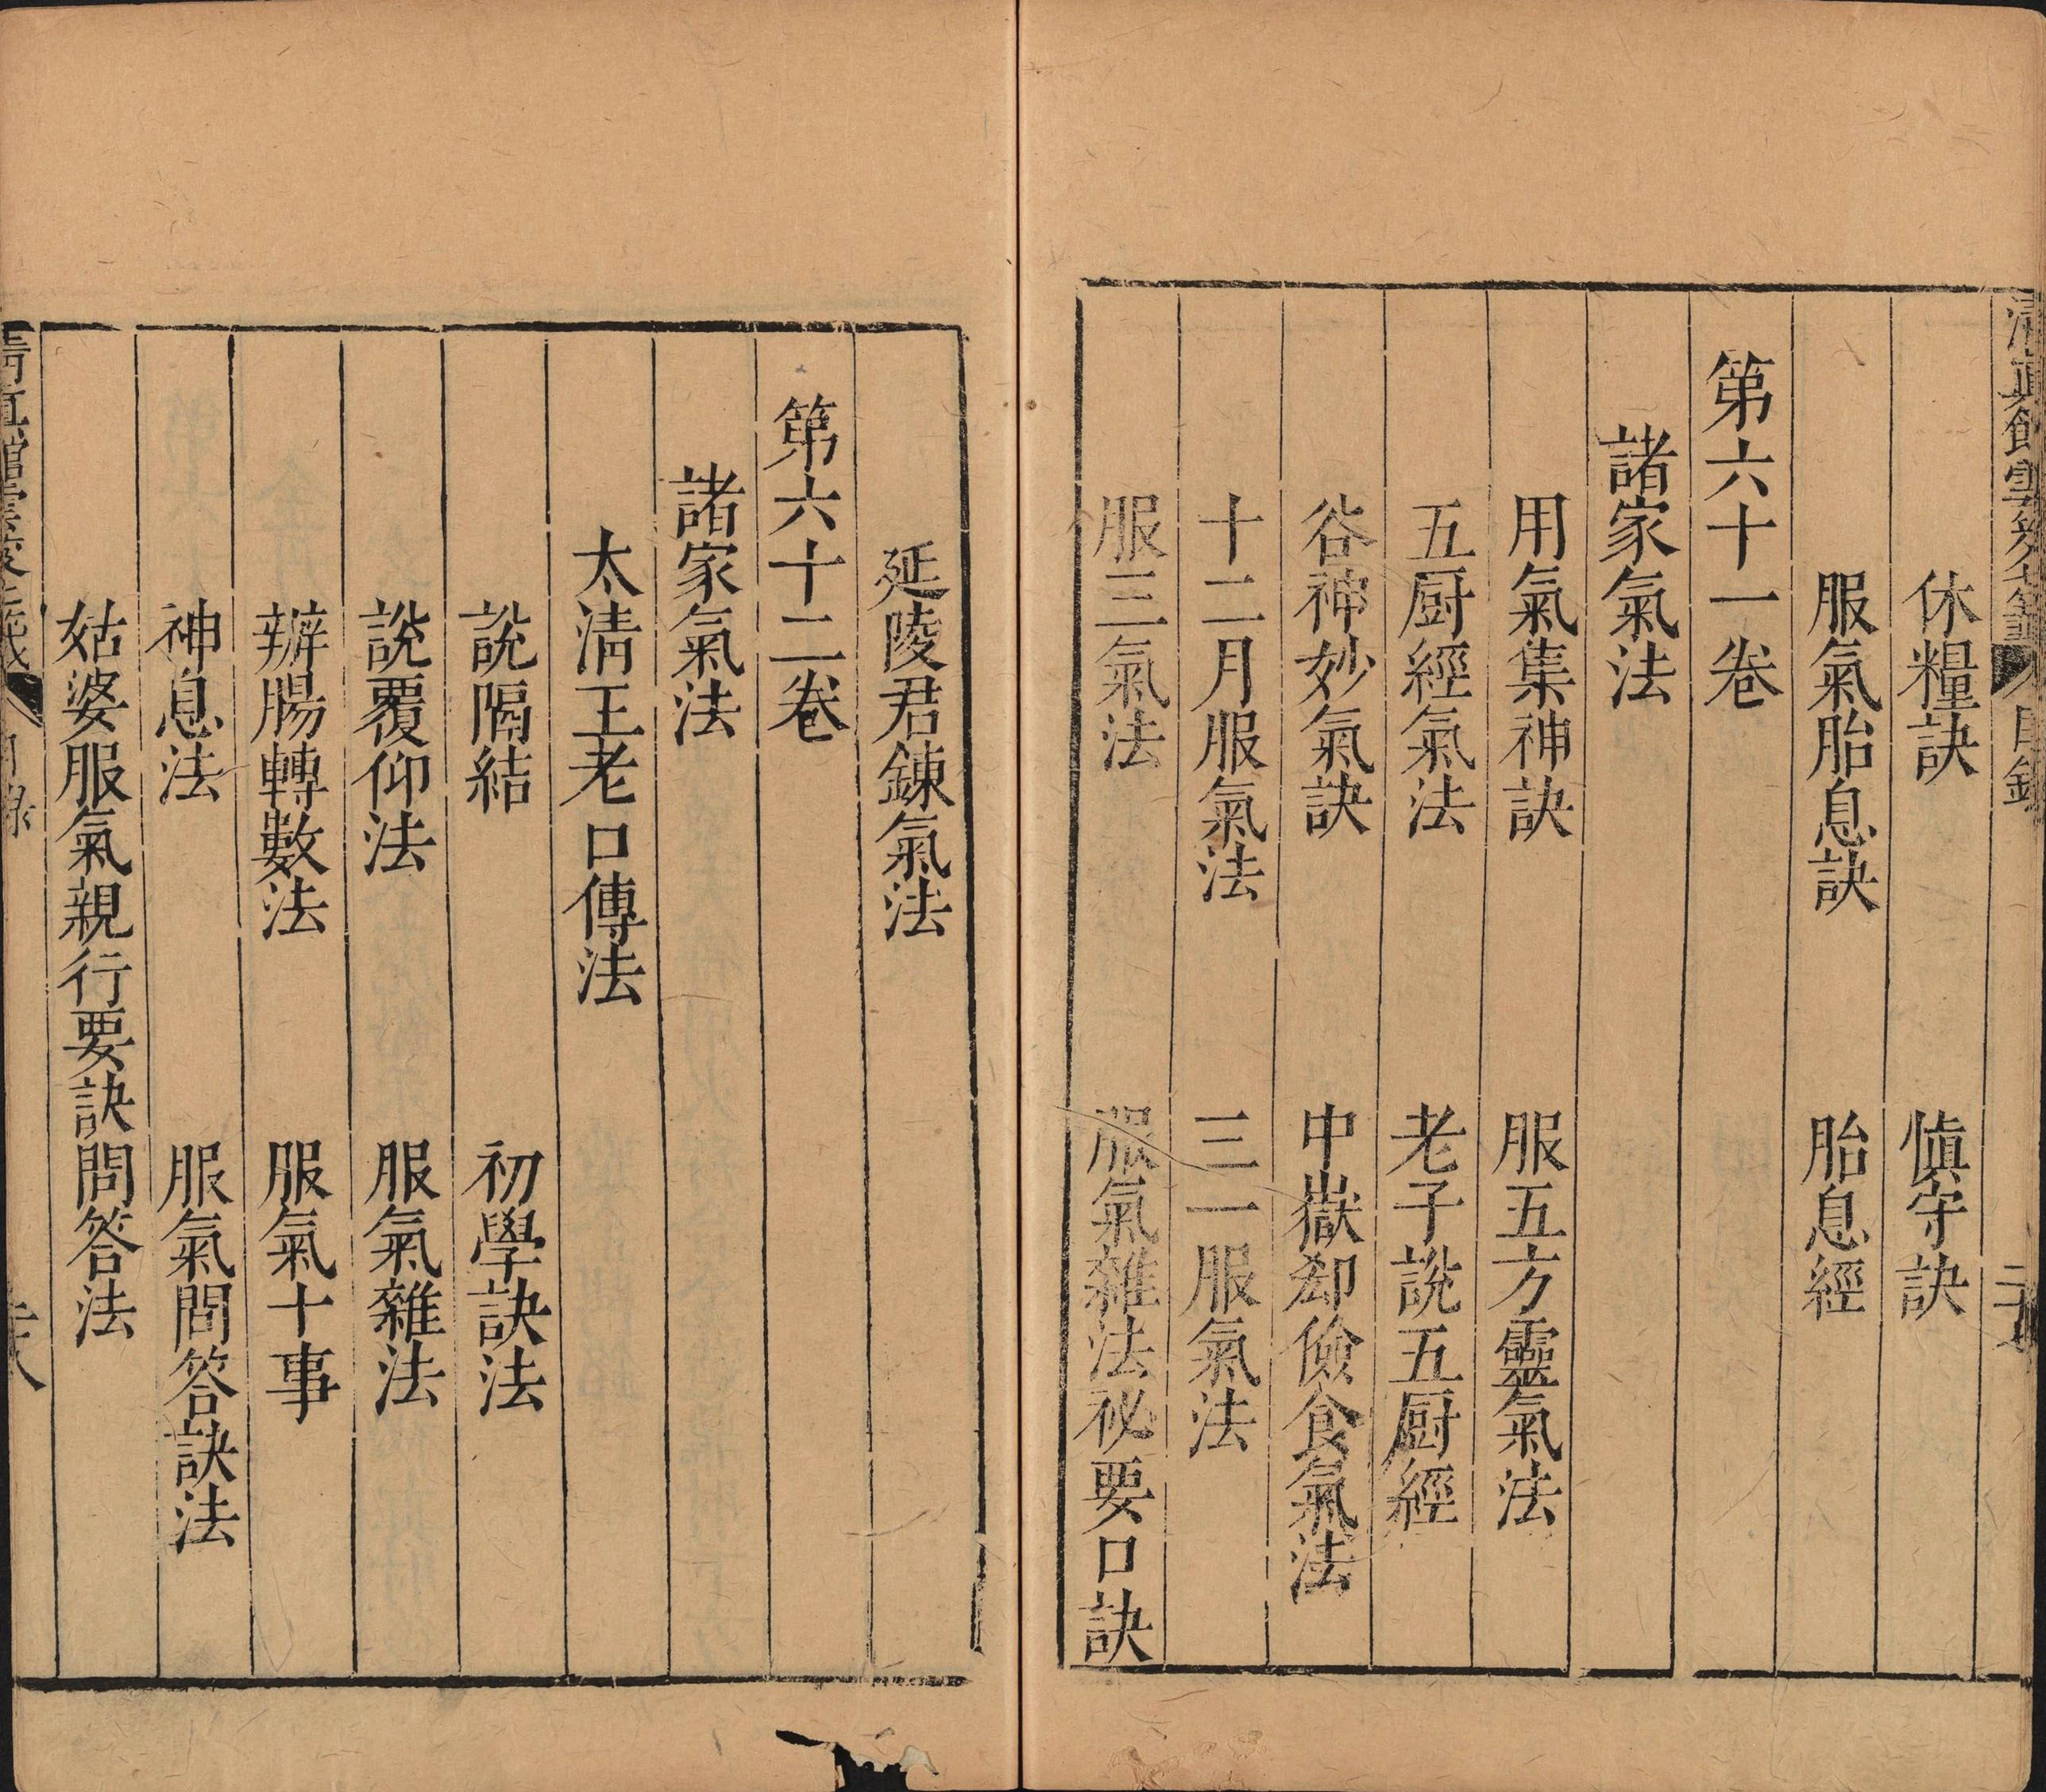 休糧訣　慎守訣
服氣胎息訣　胎息經
第六十一卷
諸家氣法
用氣集神訣　服五方靈氣法
五厨經氣法　老子說五厨經
谷神妙氣訣　中嶽郄儉食氣法
十二月服氣法　三一服氣法
服三氣法　服氣雜法祕要口訣
延陵君鍊氣法
第六十二卷
諸家氣法
太清王老口傳法
說隔結　初學訣法
說覆仰法　服氣雜法
辨腸轉數法　服氣十事
神息法　服氣問答訣法
姑婆服氣親行要訣問答法
目錄